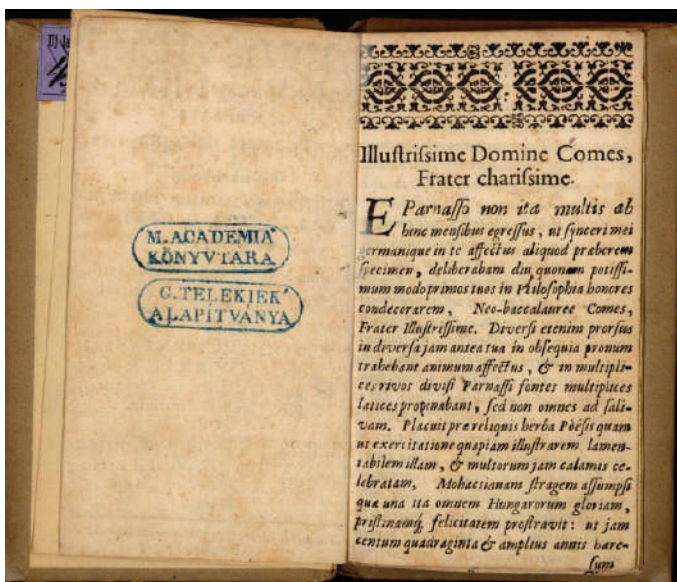 M. ACADEMIA
KÖNYVTARA
G. TELEKIEK
ALAPITVÁNYA
Illuſtriſsime Domine Comes,
Frater chariſsime.
E Parnaſſo non ita multis ab
hinc menſibus egreſſus, ut ſynceri mei
germanique in te affectus aliquod præberem
ſpecimen, deliberabam diu quonam potiſſi-
mum modo primos tuos in Philoſophia honores
condecorarem, Neo-baccalauree Comes,
Frater Illuſtriſſime. Diverſi etenim prorſus
in diverſa jam antea tua in obſequia pronum
trahebant animum affectus, & in multipli-
ces rivos diviſi Parnaſſi fontes multiplices
latices propinabant, ſed non omnes ad ſali-
vam. Placuit præ reliquis herba Pöéſis quam
ut exercitatione quapiam illuſtrarem lamen-
tabilem illam, & multorum jam calamis ce-
lebratam, Mohacsianam ſtragem aſſumpſi
quæ una ita omnem Hungarorum gloriam,
priſtinamq; felicitatem proſtravit: ut jam
centum quadraginta & amplius annis hære-
ſum